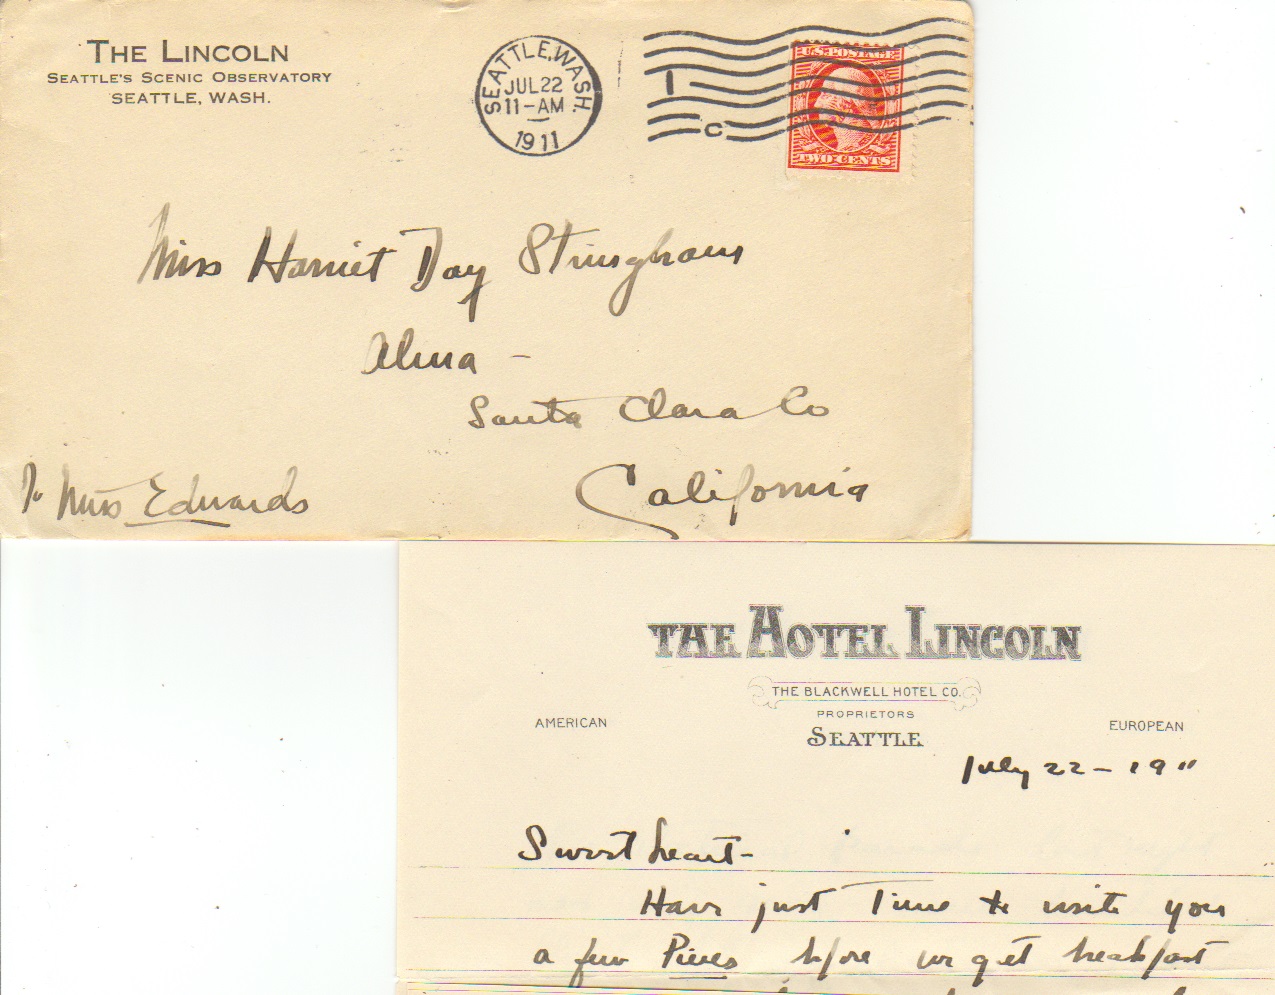 THE LINCOLN
SEATTLE'S SCENIC OBSERVATORY
SEATTLE, WASH.
SEATTLE, WASH.
JUL 22
11-AM
1911
1
C
U.S. POSTAGE
TWO CENTS
Miss Harriet Day Stringham
Alma -
Santa Clara Co
California
Miss Edwards
THE HOTEL LINCOLN
THE BLACKWELL HOTEL CO.
PROPRIETORS
AMERICAN
EUROPEAN
SEATTLE
July 22 - 19 "
Sweet heart -
Have just time to write you
a few lines before we get breakfast